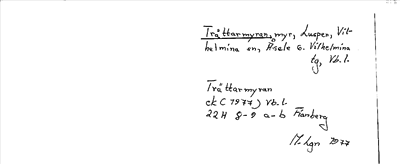 Trättarmyran, myr, Lusper, Vil-
helmina sn, Åsele o. Vilhelmina
tg, Vb. l.
Trättarmyran
ek (1977) Vb. l.
22H 8-9 a-b Fianberg
M. Lgn 1977